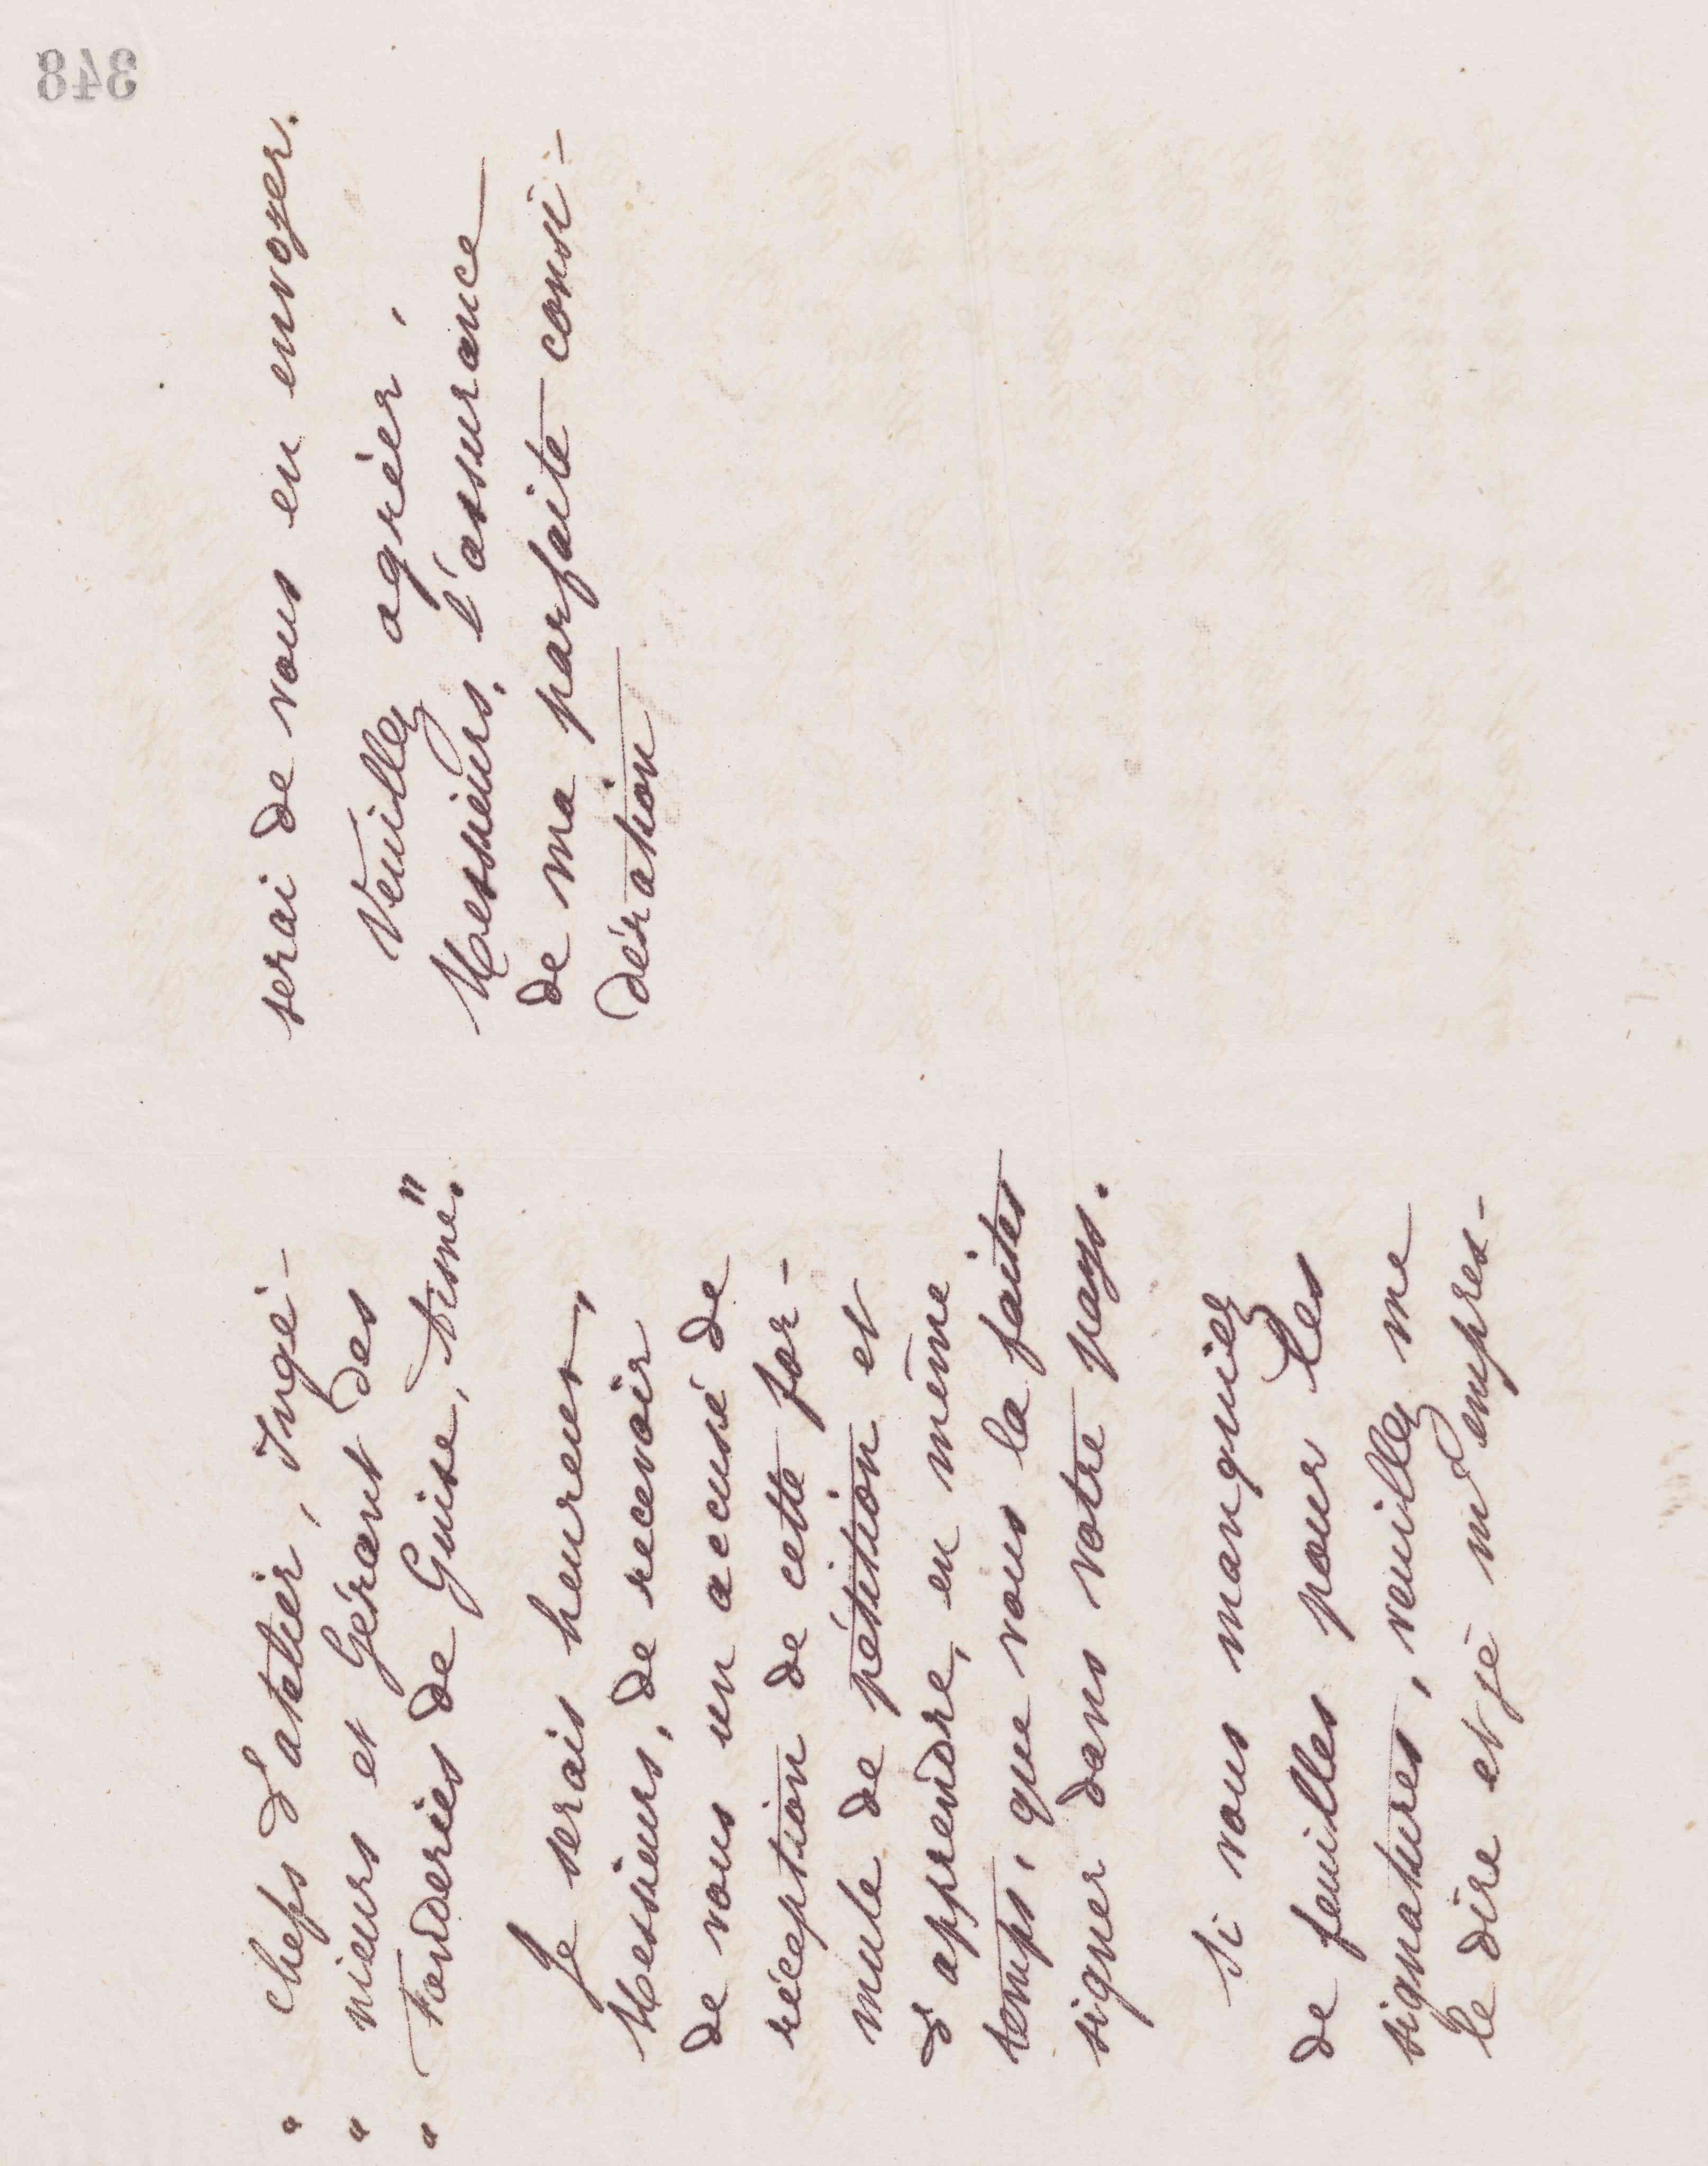 " chefs d'atelier, Ingé-
" nieurs et Gérant des
" Fonderies de Guise, Aisne".
Je serais heureux,
Messieurs, de recevoir
de vous un accusé de
réception de cette for-
mule de pétition et
d'apprendre, en même
temps, que vous la faites
signer dans votre pays.
Si vous manquiez
de feuilles pour les
signatures, veuillez me
le dire et je m'empres-
serai de vous en envoyer.
Veuillez agréer,
Messieurs, l'assurance
de ma parfaite consi-
dération
348